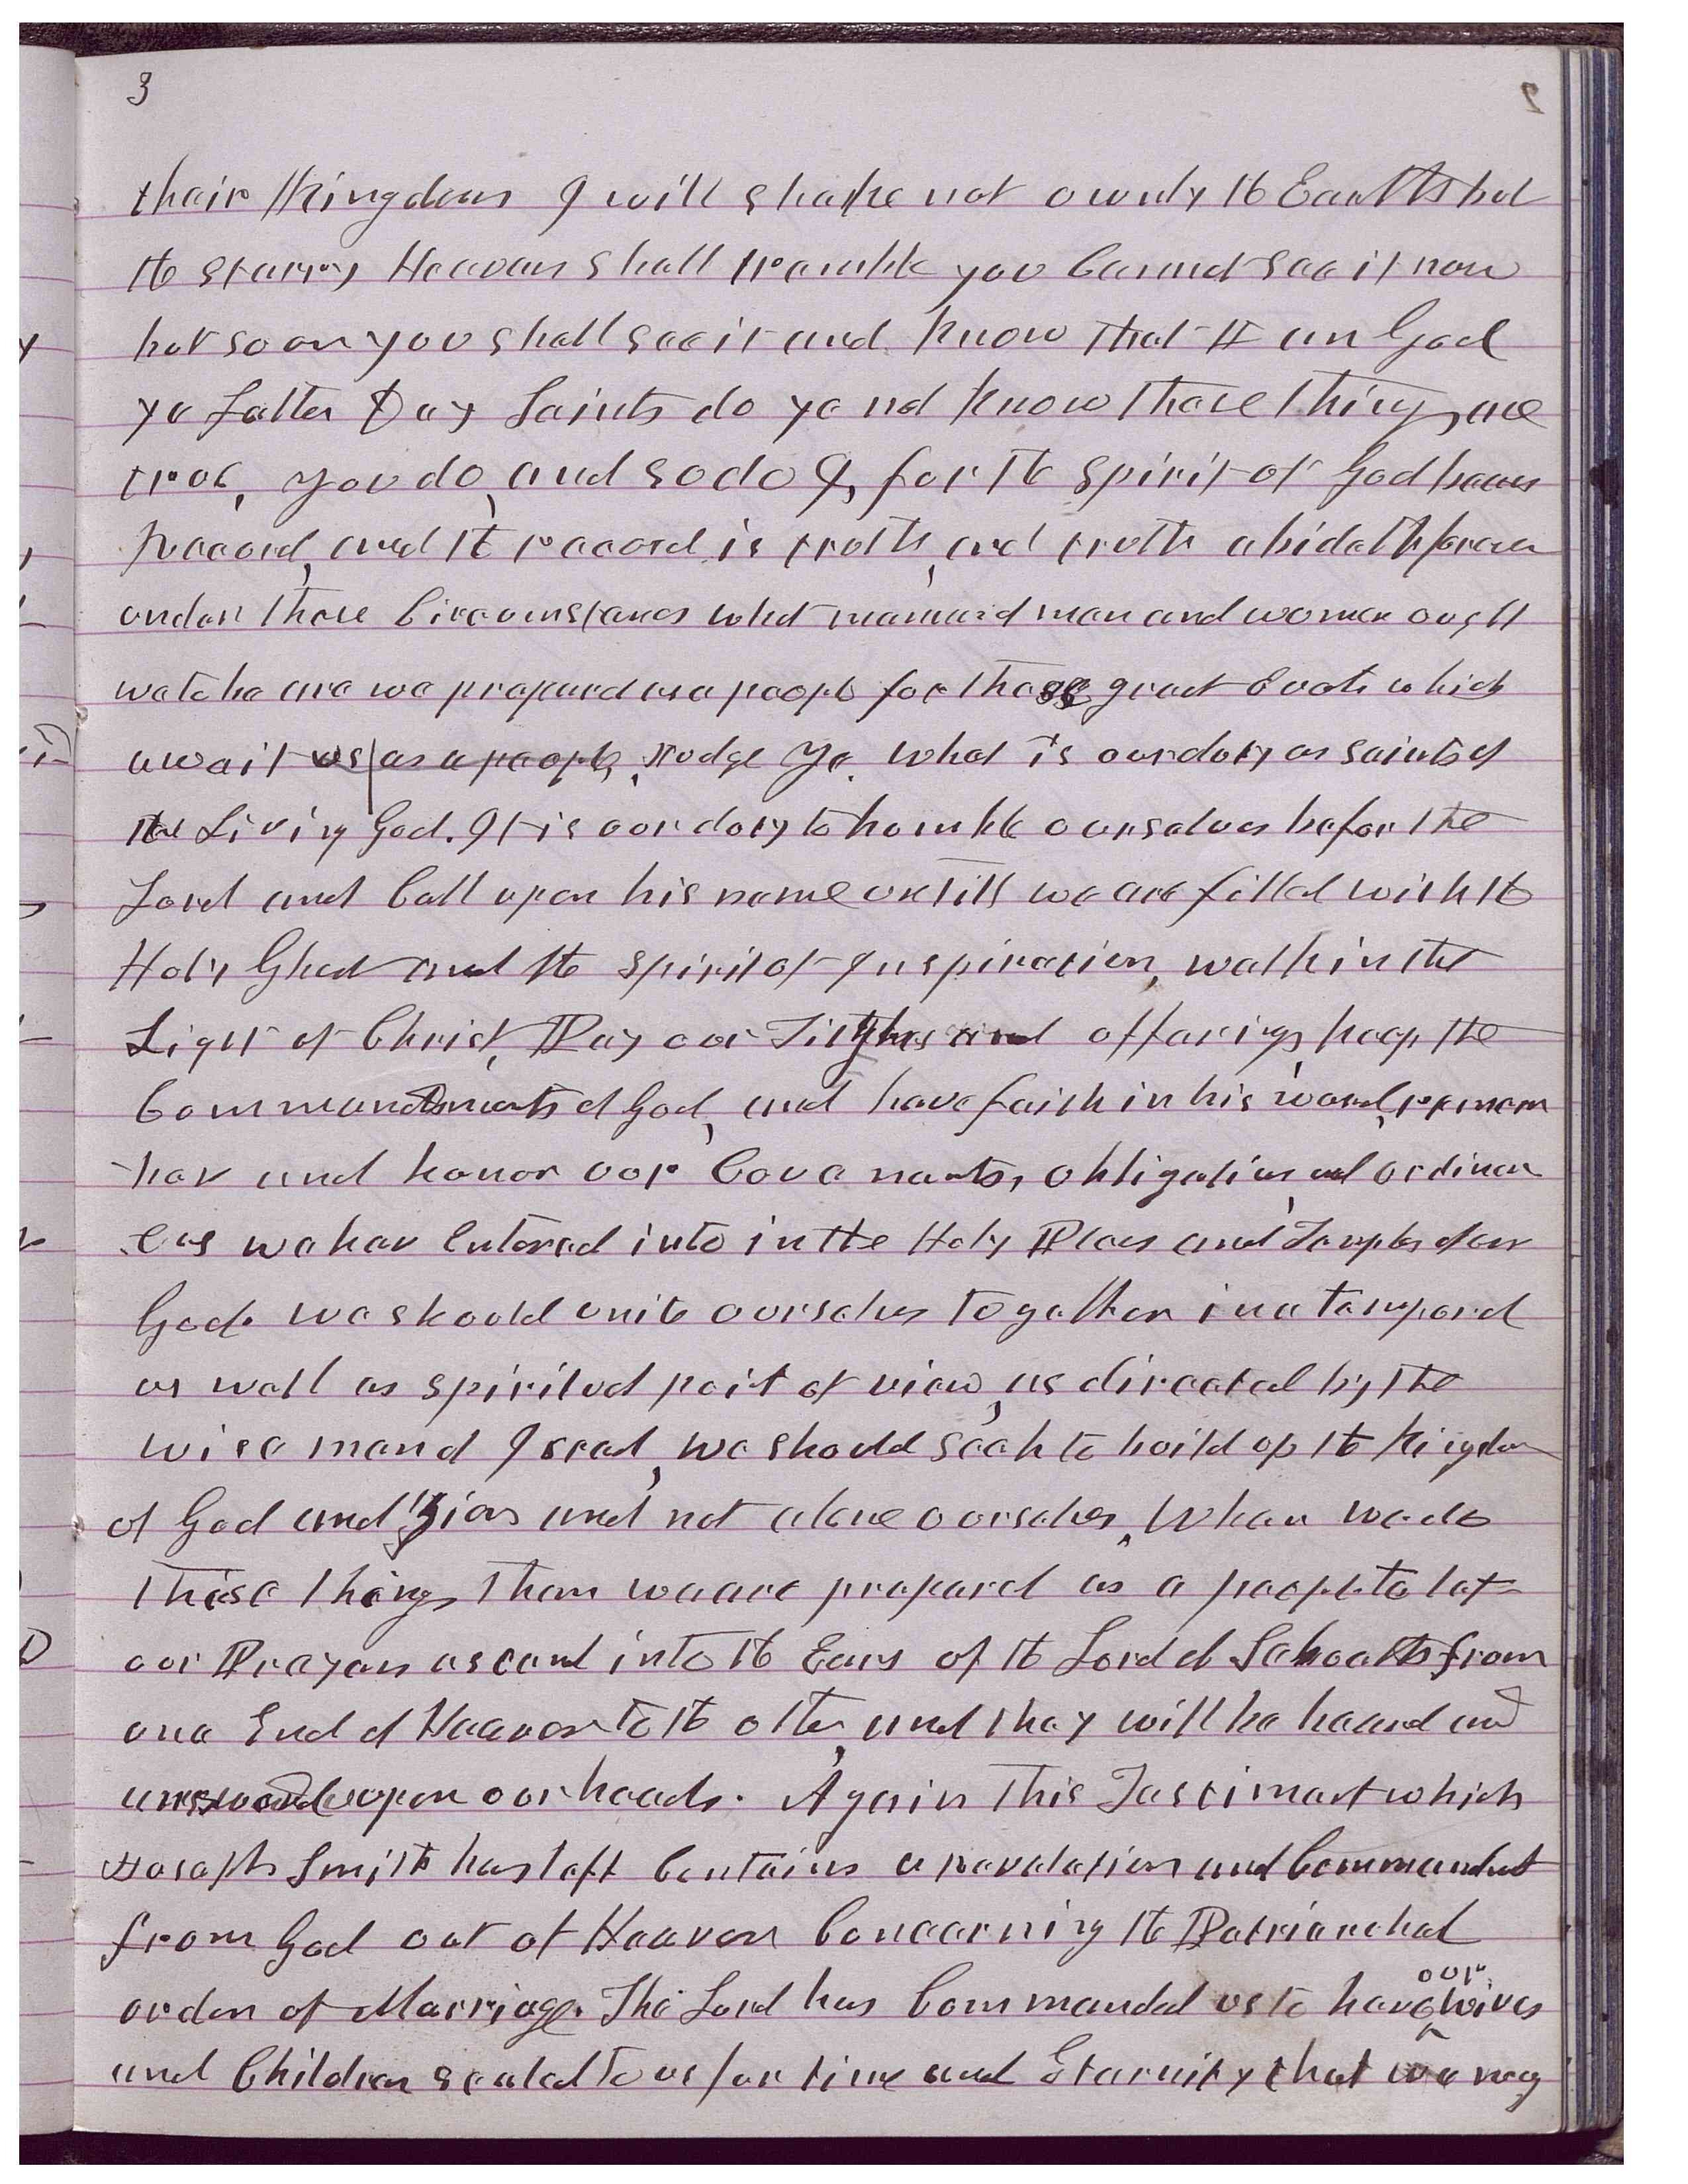 3
thair Kingdoms I will shake not ownly the Earth but
the starry Heavens shall tremble you Cannot see it now
but soon you shall see it and know that I am God
ye Latter Day Saints do ye not know these things are
true, you do, and so do I, for the spirit of God bears
record, and the record is truth, and truth abideth forever
under these Circumstances what manner of men and women ought
we to be are we prepared as a people for those great Events which
await us as a people, Judge ye. What is our duty as saints of
the Living God. It is our duty to humble ourselves before the
Lord and Call upon his name untill we are filled with the
Holy Ghost and the spirit of Inspiration, walk in the
Light of Christ, Pay our Tithes and offerings, keep the
Commandments of God, and have faith in his word, remem
ber and honor our Covenants, obligations and ordinan
ces we hav Entered into in the Holy Places and Temples of our
God. we should unite ourselves together in a temporal
as well as spiritual point of view, as directed by the
wise men of Israel, we should seek to build up the kingdom
of God and Zion and not alone ourselves. When we do
these things then we are prepared as a people to let
our Prayers ascend into the Ears of the Lord of Saboath from
one End of Heaven to the other, and they will be heard and
answered upon our heads. Again This Testiment which
Joseph Smith has left Contains a revelation and Commandment
from God out of Heaven Concerning the Patriarchal
our
order of Marriage. The Lord has Commanded us to have wives
and Children sealed to us for time and Eternity that we may